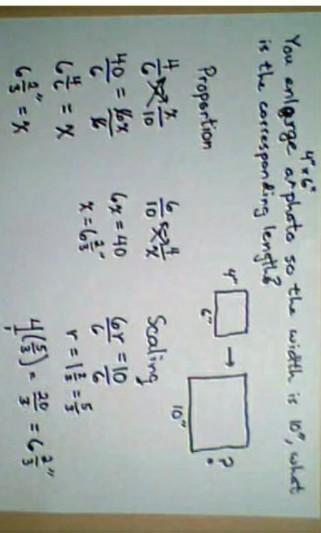 You enlarge a 4"x6" photo so the width is 10", what
is the corresponding length?
4"
6"
→
10"
?
Proportion
4/6 = x/10
40/6 = 6x/6
6 4/6 = x
6 2/3" = x
6/10 = 4/x
6x = 40
x = 6 2/3"
Scaling
6r/6 = 10/6
r = 1 2/3 = 5/3
4(5/3) = 20/3 = 6 2/3"